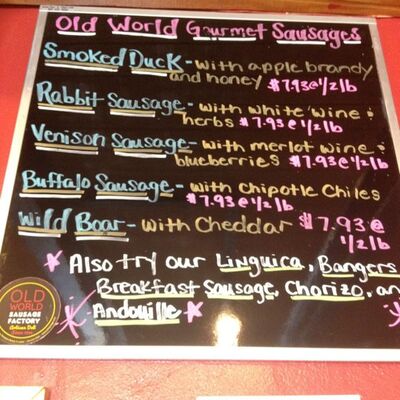 Old World Gourmet Sausages
Smoked Duck - with apple brandy
and honey $7.93@1/2lb
Rabbit Sausage - with white wine &
herbs $7.93@1/2lb
Venison Sausage - with merlot wine &
blueberries $7.93@1/2lb
Buffalo Sausage - with chipotle chiles
$7.93@1/2lb
Wild Boar - with Cheddar $7.93@
1/2lb
* Also try our Linguica, Bangers
Breakfast Sausage, Chorizo, an
Andouille *
OLD
WORLD
SAUSAGE
FACTORY